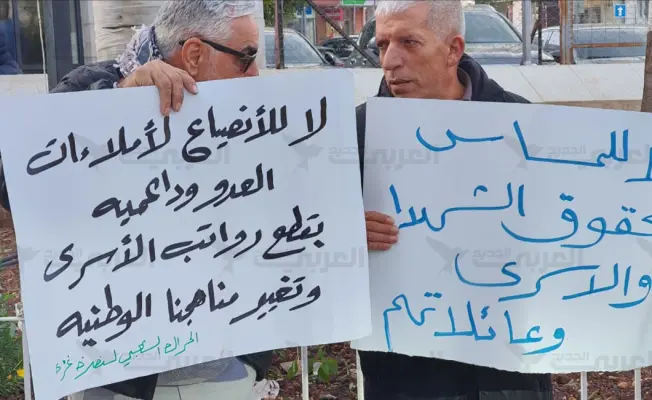 لا للأنصياع لأملاءات
العدو وداعميه
بقطع رواتب الأسرى
وتغيير مناهجنا الوطنيه
الحراك الشعبي لنصرة غزة
لا للمساس
بحقوق الشهداء
والاسرى
وعائلاتهم
العربي الجديد